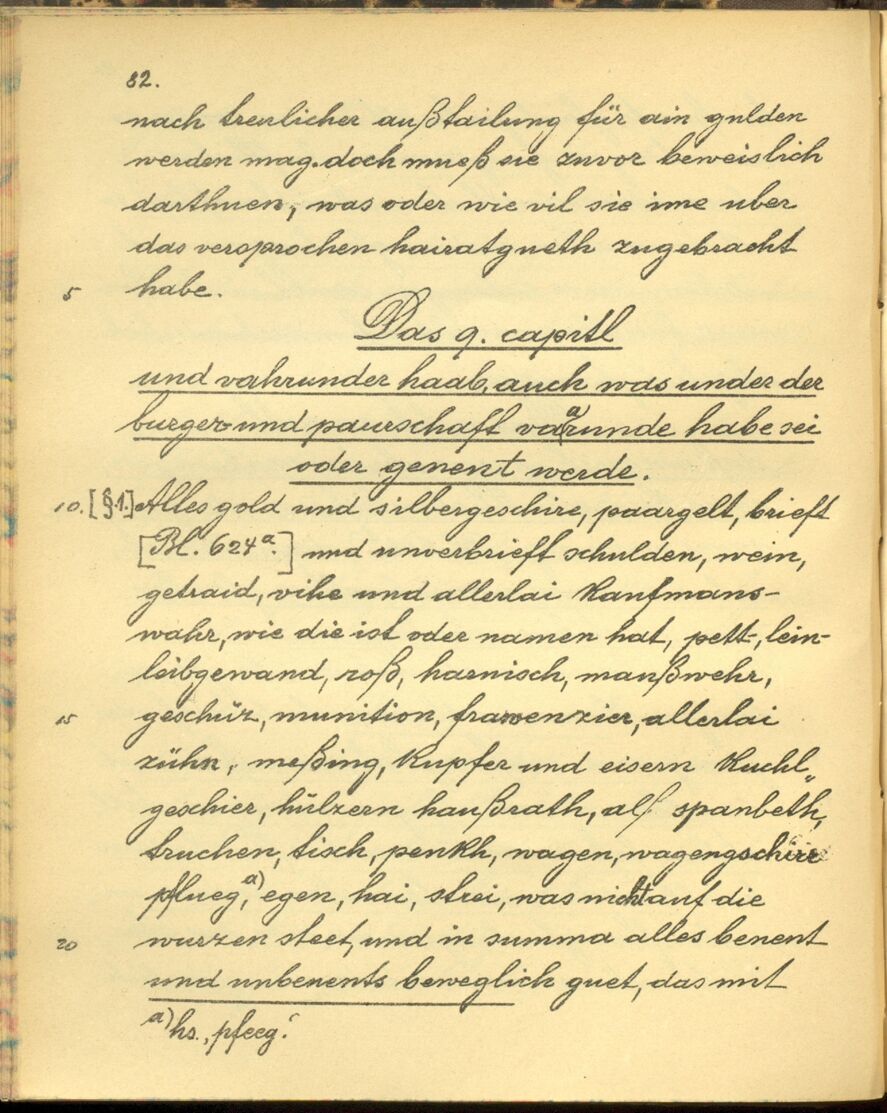 82.
nach treulicher außtailung für ain gulden
werden mag. doch mueß sie zuvor beweislich
darthuen, was oder wie vil sie ime uber
das versprochen hairatgueth zugebracht
5 habe.
Das 9. capitl
und vahrunder haab, auch was under der
burger und paurschaft varunde habe sei
oder genent werde.
10. [§.1.] Alles gold und silbergeschire, paargelt, brieft
[Bl. 624a.] und unverbrieft schulden, wein,
getraid, vihe und allerlai Kaufmans-
wahr, wie die ist oder namen hat, pett-, lein-
leibgewand, roß, harnisch, manßwehr,
15 geschüz, munition, frawenzier, allerlai
zühn, meßing, Kupfer und eisern Kuchl„
geschier, hülzern haußrath, alß spanbeth,
truchen, tisch, penkh, wagen, wagengschirr
pflueg,a) egen, hai, strei, was nicht auf die
20 wurzen steet, und in summa alles benent
und unbenents beweglich guet, das mit
a) hs. „pfeeg“.